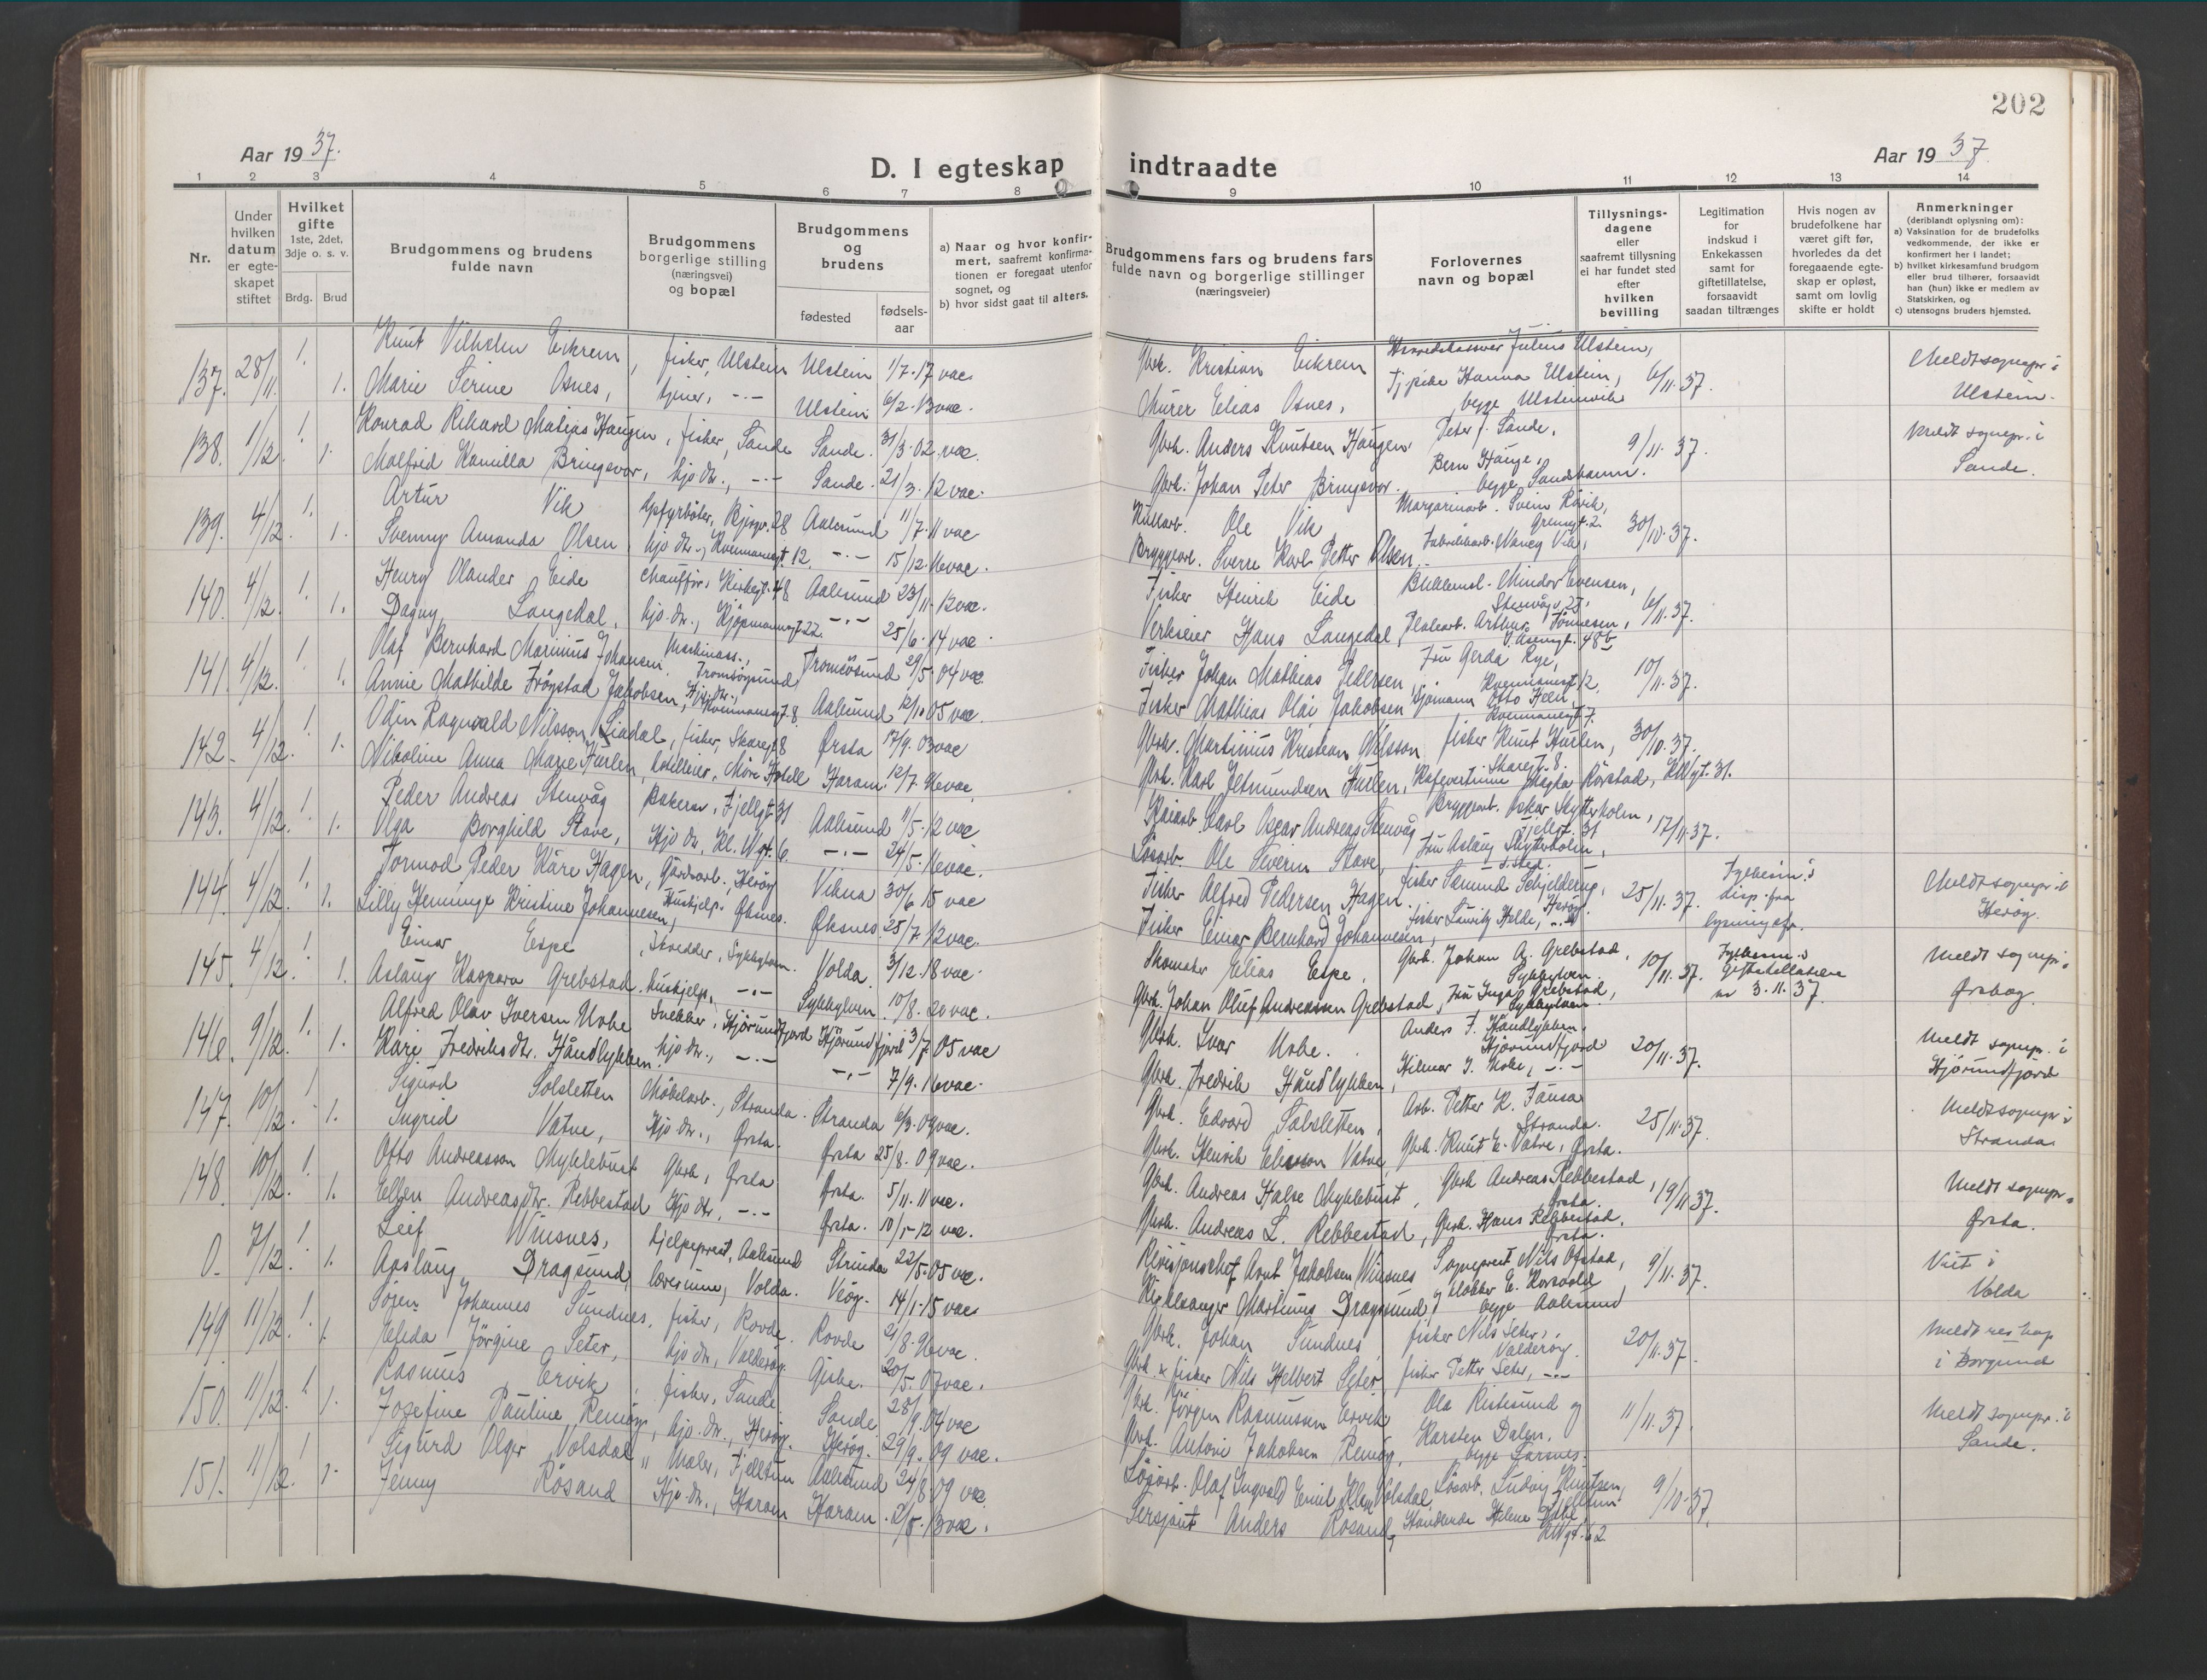 202
Aar 19 37.
D. I egteskap indtraadte
Aar 19 37
1 2 3 4 5 6 7 8 9 10 11 12 13 14
Nr.
Under hvilken datum er egte-skapet stiftet
Hvilket gifte 1ste, 2det, 3dje o. s. v.
Brdg. Brud
Brudgommens og brudens fulde navn
Brudgommens borgerlige stilling (næringsvei) og bopæl
Brudgommens og brudens
fødested
fødsels-aar
a) Naar og hvor konfir-mert, saafremt konfirma-tionen er foregaat utenfor sognet, og
b) hvor sidst gaat til alters.
Brudgommens fars og brudens fars fulde navn og borgerlige stillinger (næringsveier)
Forlovernes navn og bopæl
Tillysnings-dagene eller saafremt tillysning ei har fundet sted efter hvilken bevilling
Legitimation for indskud i Enkekassen samt for giftetillatelse, forsaavidt saadan tiltrænges
Hvis nogen av brudefolkene har været gift før, hvorledes da det foregaaende egte-skap er opløst, samt om lovlig skifte er holdt
Anmerkninger (deriblandt oplysning om):
a) Vaksination for de brudefolks vedkommende, der ikke er konfirmert her i landet;
b) hvilket kirkesamfund brudgom eller brud tilhører, forsaavidt han (hun) ikke er medlem av Statskirken, og
c) utensogns bruders hjemsted.
137. 28/11 1. Knut Vilhelm Eikrem, fisker, Ulstein Ulstein 1/7.17 vac. Gbrk. Kristian Eikrem Julius Ulstein, 6/11.37. Meldt sognepr. i
1. Marie Serine Osnes, tjener, -"- Ulstein 6/2.13 vac. Murer Elias Osnes, Hanna Ulstein, begge Ulsteinvik Ulstein.
138. 1/12. 1. Konrad Rikard Matias Haugen, fisker, Sande Sande. 31/3.02. vac. Gbrk. Anders Knutsen Haugen. Peter J. Sande, 9/11.37. Meldt sognepr. i
1. Malfrid Kamilla Bringsvor, hjo. dtr., -"- Sande. 21/3.12 vac. Gbrk. Johan Peter Bringsvor. Bern Hauge, begge Sandshamn. Sande.
139. 4/12. 1. Artur Vik 28 Aalesund 11/7.11 vac Ole Vik Margarinarb. Svein Rövik, 30/10.37.
1. Svenny Amanda Olsen, hjo. dtr., Kvennanesgt. 12. -"- 15/12.16 vac. Bryggearb. Sverre Karl Petter Olsen Fabrikarb. Nancy Vik,
140. 4/12. 1. Henry Olander Eide Chauffør, Kirkegt. 48 Aalesund 23/11.12 vac. Fisker Henrik Eide Mindor Evensen, 6/11.37.
1. Dagny Langedal, hjo. dtr., Kjøpmannsgt. 22. -"- 25/6.14 vac. Verkseier Hans Langedal, Arthur Tønnesen, 48b
141. 4/12. 1. Olaf Bernhard Marinius Johansen Maskinass., Tromsøysund Tromsøsund 29/5.04 vac. Fisker Johan Mathias Pedersen, Fru Gerda Rye, Kvennanesgt. 12, 10/11.37.
1. Annie Mathilde Frøystad Jakobsen, hjo. dtr., Kvennanesgt. 8 Aalesund 12/10.05 vac. Fisker Mathias Olai Jakobsen Sjømann Otto Helu Kvennanesgt. 7.
142. 4/12. 1. Odin Ragnvald Nilsson Liadal, fisker, Skaregt. 8 Ørsta 17/9.03 vac Gbrk. Martinius Kristian Nilsson fisker Knut Hurlen, Skaregt. 8. 30/10.37.
1. Nikoline Anna Marie Hurlen, Møre Hotell Haram. 12/7.96 vac. Gbrk. Karl Jetmundsen Hurlen, Magda Rørstad, KlWgt. 31.
143. 4/12. 1. Peder Andreas Stenvåg Bakersv., Fjellgt. 31 Aalesund 11/5.12 vac Kaiarb. Carl Oscar Andreas Stenvåg Bryggearb. Oskar Skytterholm, Fjellgt. 31 17/11.37.
1. Olga Borghild Stave, hjo. dtr., Kl. Wgt. 6. -"- 24/5.16 vac. Løsarb. Ole Severin Stave, Fru Aslaug Skytterholm,
144. 4/12. 1. Tormod Peder Kåre Hagen, Gårdsarb., Herøy Vikna 30/6 15 vac Fisker Alfred Pedersen Hagen. fisker Samund Schjelderup, Herøy. 25/11.37. Fylkesm.s disp. fra lysning Meldt sognepr. i
1. Lilly Henninge Kristine Johannesen, Hushjelp. Øksnes. Øksnes. 25/7.12 vac. Fisker Einar Bernhard Johannesen, fisker Lauritz Helle, -"- Herøy.
145. 4/12. 1. Einar Espe, Skredder, Sykkylven. Volda. 3/12.18 vac. Skomaker Elias Espe, Gbrk. Johan A. Grebstad, Sykkylven. 10/11.37. Fylkesm.s Giftetillatelse av 3.11.37. Meldt sognepr. i
1. Aslaug Kaspara Grebstad. hushjelp, -"- Sykkylven. 10/8.20 vac. Gbrk. Johan Oluf Andreassen Grebstad, Fru Inga Grebstad, Sykkylven. Ørskog.
146. 9/12. 1. Alfred Olav Iversen Urke Snekker, Hjørundfjord Hjørundfjord 3/7.05 vac Gbrk. Ivar Urke. Anders F. Håndlykken. Hjørundfjord 20/11.37. Meldt sognepr. i
1. Kåre Fredriksdtr. Håndlykken. hjo. dtr., -"- -"- 7/9.16 vac. Gbrk. Fredrik Håndlykken, Hilmar I. Urke, -"- Hjørundfjord
147. 10/12. 1. Sigurd Solsletten Möbelarb., Stranda. Stranda 6/3.09 vac. Gbrk. Edvard Solsletten, Arb. Petter K. Fausa Stranda. 25/11.37. Meldt sognepr. i
1. Ingrid Vatne, Hjo. dtr., Ørsta. Ørsta 25/8.09 vac. Gbrk. Henrik Eliasson Vatne, Gbrk. Knut E. Vatne, Ørsta. Stranda.
148. 10/12. 1. Otto Andreasson Myklebust Gbrk., Ørsta Ørsta. 5/11.11 vac. Gbrk. Andreas Halse Myklebust, Gbrk. Andreas Rebbestad, Ørsta. 19/11.37. Meldt sognepr. i
1. Ellen Andreasdtr. Rebbestad Hjo. dtr., -"- Ørsta. 10/1.12 vac. Gbrk. Andreas L. Rebbestad, Gbrk. Hans Rebbestad, Ørsta. Ørsta.
0. 7/12. 1. Leif Winsnes, hjelpeprest, Aalesund Strinda 22/5.05 vac. Revisjonschef Arnt Jakobsen Winsnes Sogneprest Nils Ofstad, 9/11.37. Viet i
1. Aaslaug Dragsund, lærerinne, Volda. Herøy. 14/1.15 vac Kirkesanger Martinus Dragsund, og klokker E. Korsvold begge Aalesund Volda
149. 11/12. 1. Søren Johannes Sundnes, fisker, Rovde. Rovde 21/8.96 vac. Gbrk. Johan Sundnes, fisker Nils Seter, Valderøy. 20/11.37. Meldt res. kap.
1. Jørgine Seter, hjo. dtr., Valderøy. Giske. 20/5.07 vac. Gbrk. & fisker Nils Helbert Seter, fisker Petter Seter, -"- i Borgund
150. 11/12. 1. Rasmus Ervik, fisker, Sande. Sande 28/9.04 vac Gbrk. Jørgen Rasmussen Ervik Ola Ristesund og 11/11.37. Meldt sognepr. i
1. Josefine Pauline Remøy, hjo. dtr., Herøy. Herøy. 29/9.09 vac. Gbrk. Antoni Jakobsen Remøy, Karsten Dalen, begge Larsnes. Sande.
151. 11/12. 1. Sigurd Olger Volsdal, Maler, Fjelltun Aalesund 24/8 09 vac. Løsarb. Olaf Ingvald Emil Volsdal, Løsarb. Ludvig Knutsen, Fjelltun 9/10.37.
1. Jenny Røsand Hjo. dtr., Haram Haram. 2/8.13 vac. Sersjant Anders Røsand, Helene KlWgt. 62